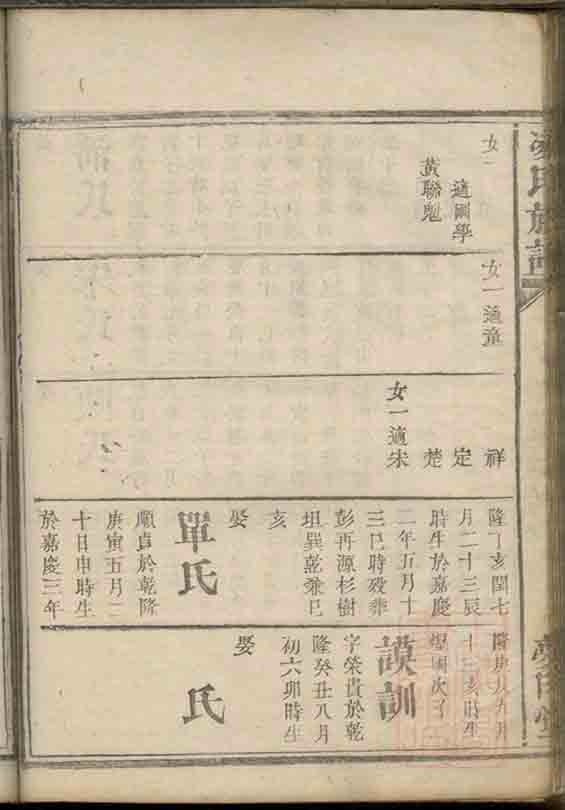 女一
適國學
黃聯魁
女一適童
祥
定
楚
女一適宋
隆丁亥閏七
月二十三辰
時生於嘉慶
二年五月十
三巳時歿葬
彭再源杉樹
坦巽乾兼巳
亥
娶
單氏
順貞於乾隆
庚寅五月二
十日申時生
於嘉慶三年
十三亥時生
謨訓
字榮貴於乾
隆癸丑八月
初六卯時生
娶
氏
氏族譜